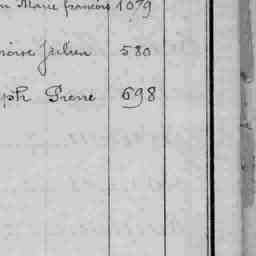 n Marie francois 1079
roise Julien 580
ph Pierre 698